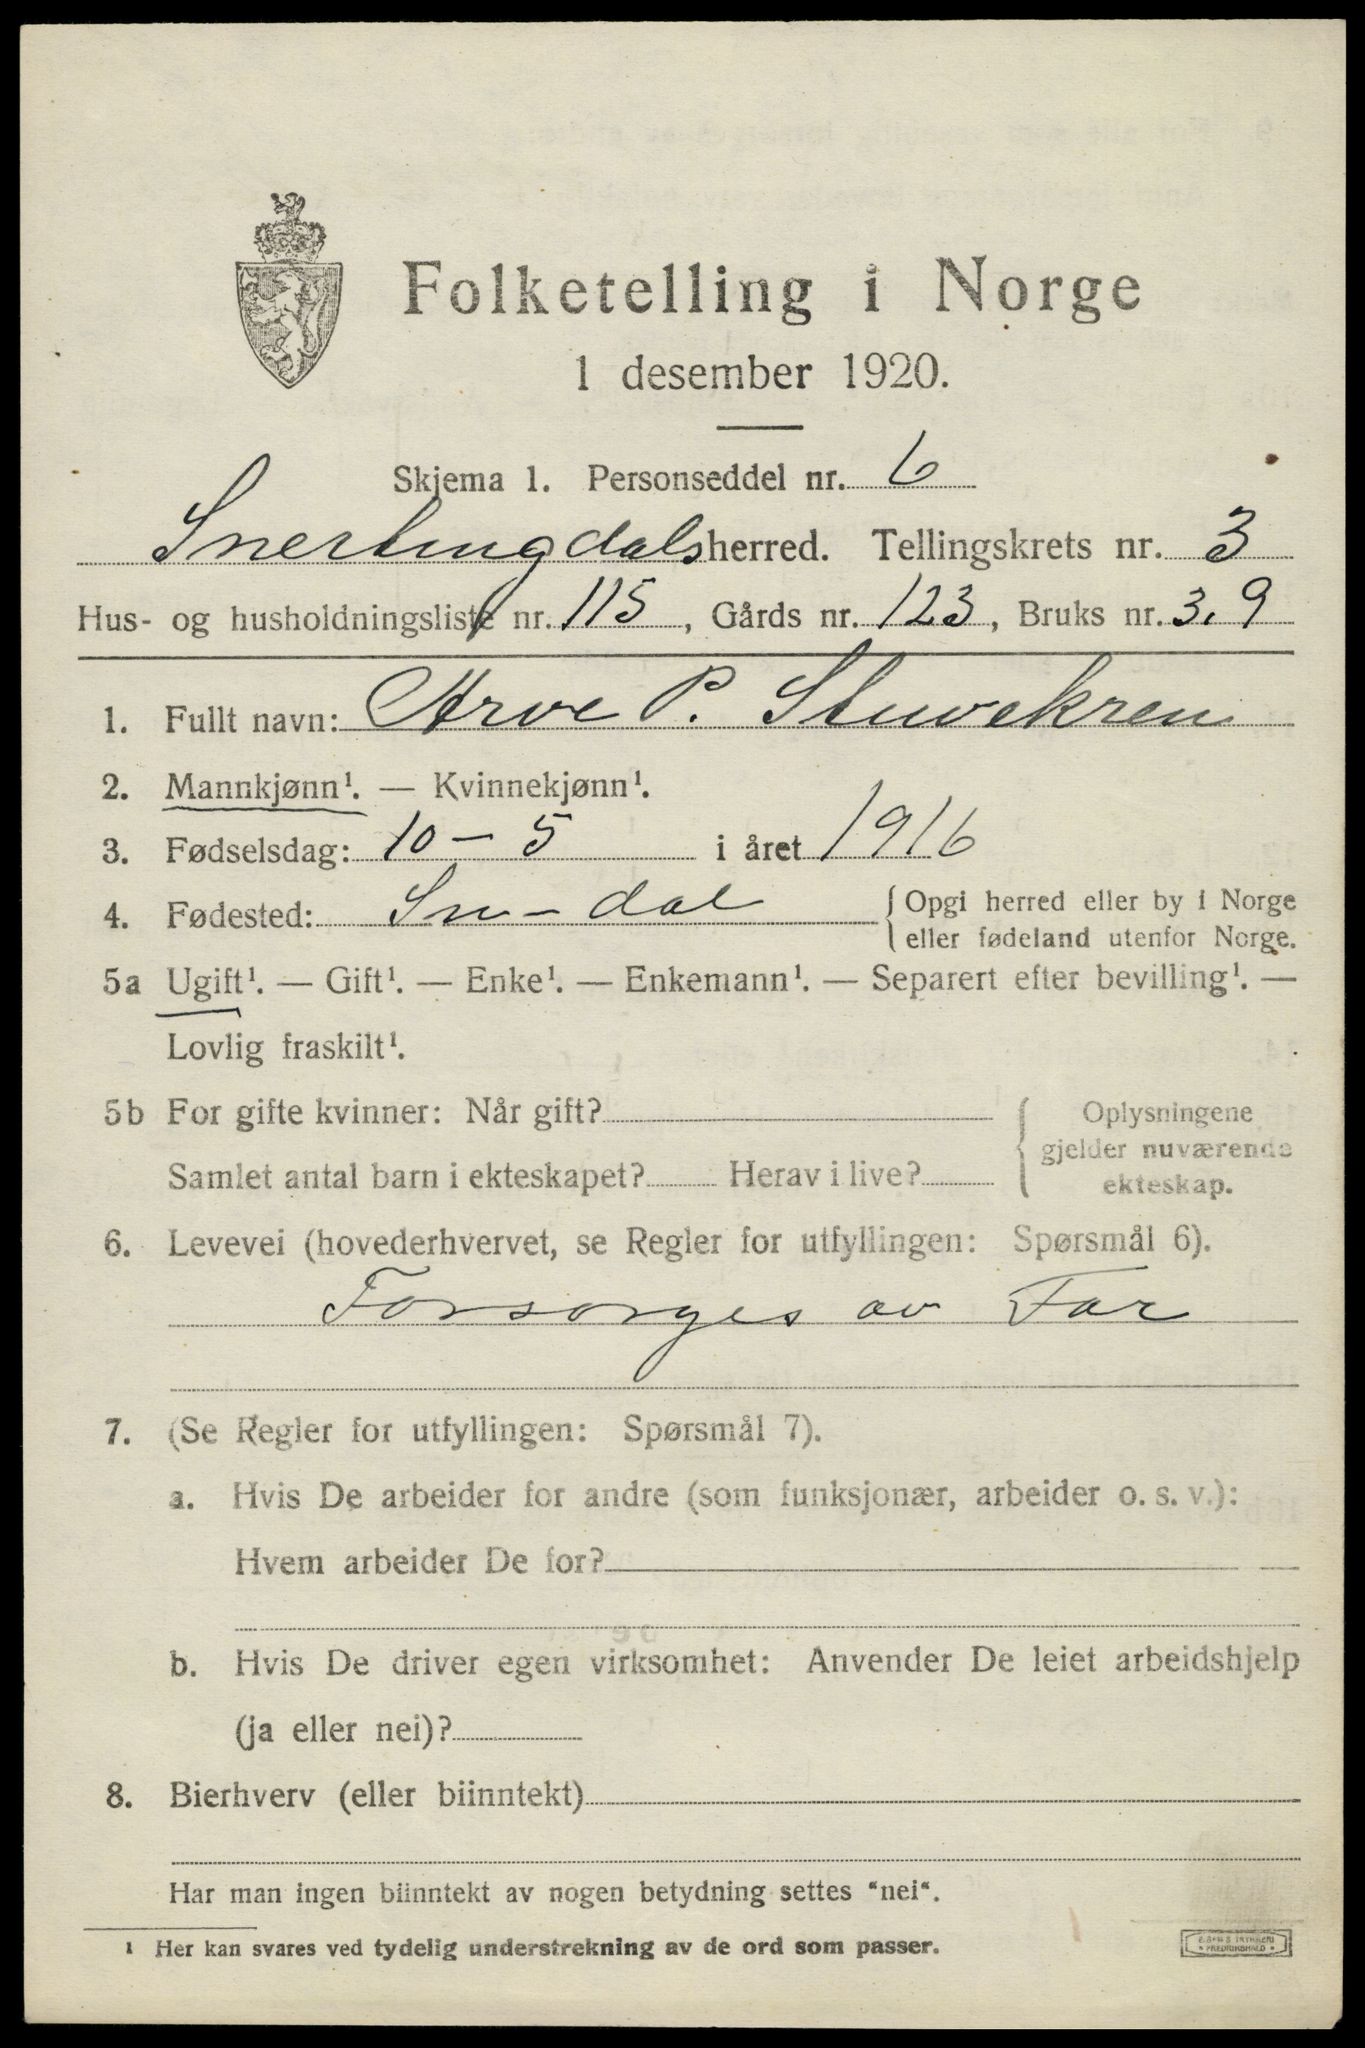 Folketelling i Norge
1 desember 1920.
Skjema 1. Personseddel nr. 6
Snertingdals herred. Tellingskrets nr. 3
Hus- og husholdningsliste nr. 115, Gårds nr. 123, Bruks nr. 3,9
1. Fullt navn: Arve P. Stuvekren
2. Mannkjønn¹. — Kvinnekjønn¹.
3. Fødselsdag: 10 – 5 i året 1916
4. Fødested: Sn-dal { Opgi herred eller by i Norge
eller fødeland utenfor Norge.
5a Ugift¹. — Gift¹. — Enke¹. — Enkemann¹. — Separert efter bevilling¹. —
Lovlig fraskilt¹.
5b For gifte kvinner: Når gift?
Samlet antal barn i ekteskapet? Herav i live?
{ Oplysningene
gjelder nuværende
ekteskap.
6. Levevei (hovederhvervet, se Regler for utfyllingen: Spørsmål 6).
Forsorges av Far
7. (Se Regler for utfyllingen: Spørsmål 7).
a. Hvis De arbeider for andre (som funksjonær, arbeider o. s. v.):
Hvem arbeider De for?
b. Hvis De driver egen virksomhet: Anvender De leiet arbeidshjelp
(ja eller nei)?
8. Bierhverv (eller biinntekt)
Har man ingen biinntekt av nogen betydning settes "nei".
¹ Her kan svares ved tydelig understrekning av de ord som passer.
FREDRIKSHALD